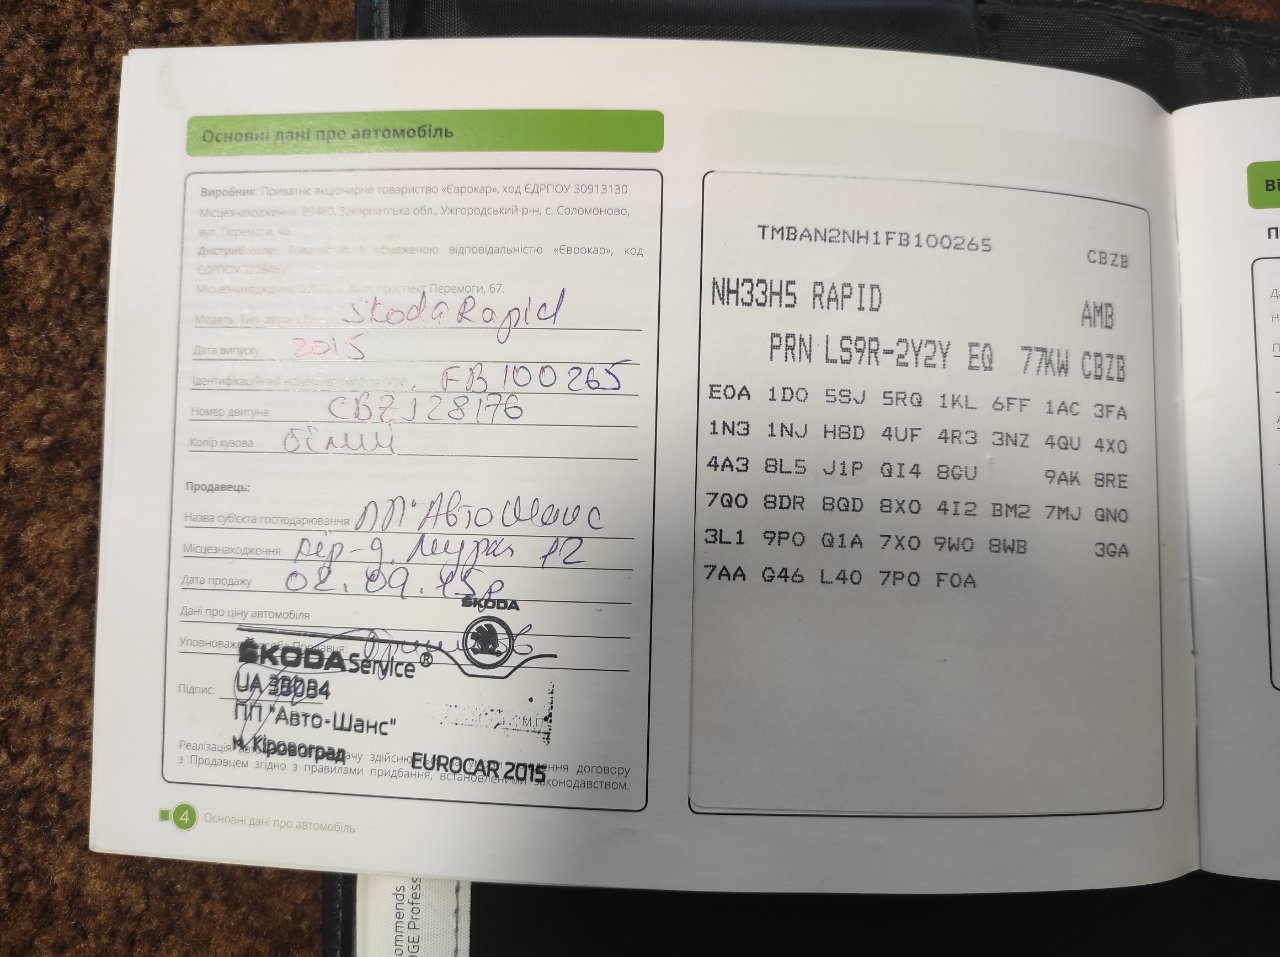 Основні дані про автомобіль
Виробник: Приватне акціонерне товариство «Єврокар», код ЄДРПОУ 30913130
Місцезнаходження: 89460, Закарпатська обл., Ужгородський р-н, с. Соломоново,
вул. Перемоги, 46.
Дистриб'ютор: Товариство з обмеженою відповідальністю «Єврокар», код
ЄДРПОУ
Місцезнаходження: проспект Перемоги, 67.
Модель, Тип Skoda Rapid
Дата випуску 2015
Ідентифікаційний номер FB100265
Номер двигуна CBZJ28176
Колір кузова білий
Продавець:
Назва суб'єкта господарювання ПП "АвтоШанс
Місцезнаходження 12
Дата продажу 02.09.15р
Дані про ціну автомобіля
ŠKODA
Підпис:
ŠKODA Service®
UA
ПП "Авто-Шанс"
М.П.
м. Кіровоград
EUROCAR 2015
Реалізація договору
з Продавцем згідно з правилами придбання, встановленими законодавством.
4 Основні дані про автомобіль
TMBAN2NH1FB100265
CBZB
NH33H5 RAPID
AMB
PRN LS9R-2Y2Y EQ 77KW CBZB
E0A 1D0 5SJ 5RQ 1KL 6FF 1AC 3FA
1N3 1NJ H8D 4UF 4R3 3NZ 4QU 4X0
4A3 8L5 J1P QI4 8GU 9AK 8RE
7Q0 8DR 8QD 8X0 4I2 BM2 7MJ QN0
3L1 9P0 Q1A 7X0 9W0 8WB 3GA
7AA G46 L40 7P0 F0A